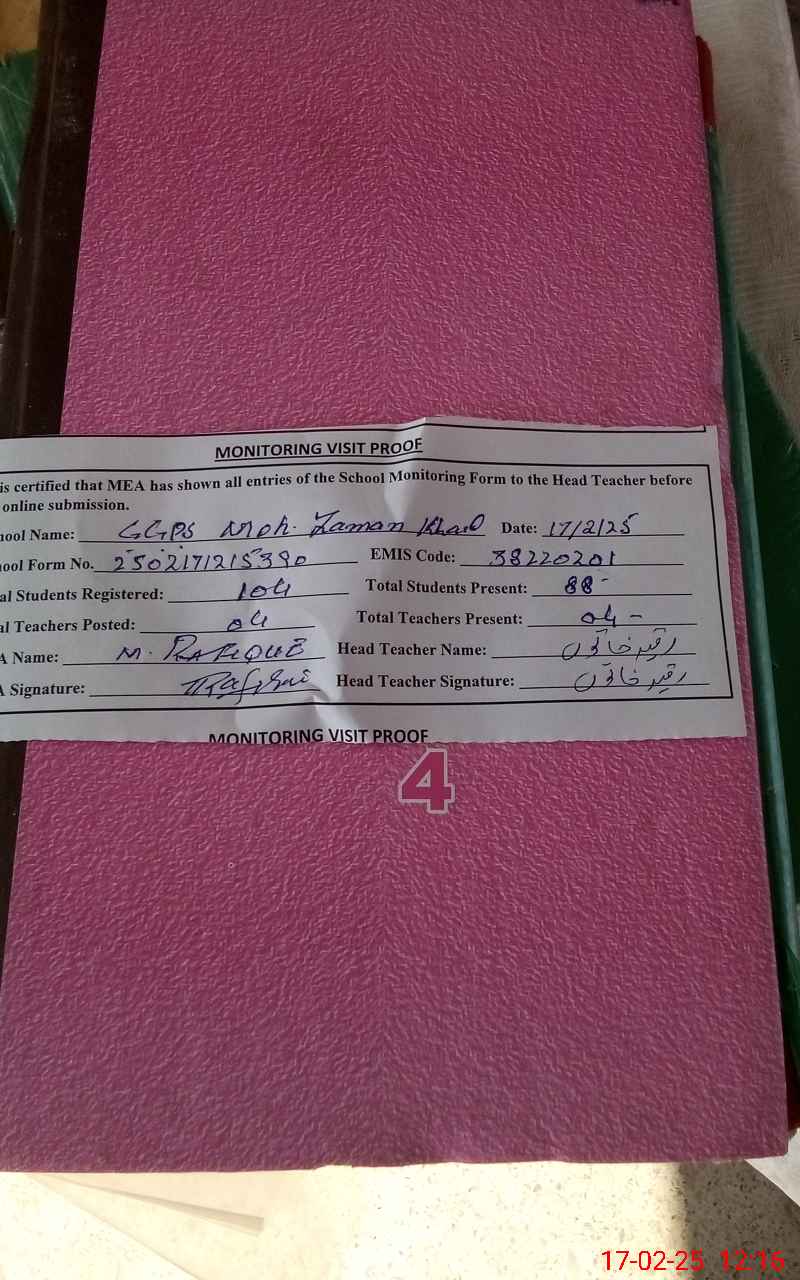 MONITORING VISIT PROOF
is certified that MEA has shown all entries of the School Monitoring Form to the Head Teacher before
online submission.
ool Name: GGPS Moh. Zaman Khail Date: 17/2/25
ool Form No. 2502171215390 EMIS Code: 38220201
al Students Registered: 104 Total Students Present: 88-
al Teachers Posted: 04 Total Teachers Present: 04-
A Name: M. RAFIQUE Head Teacher Name:
A Signature: Head Teacher Signature:
MONITORING VISIT PROOF
4
17-02-25 12:16